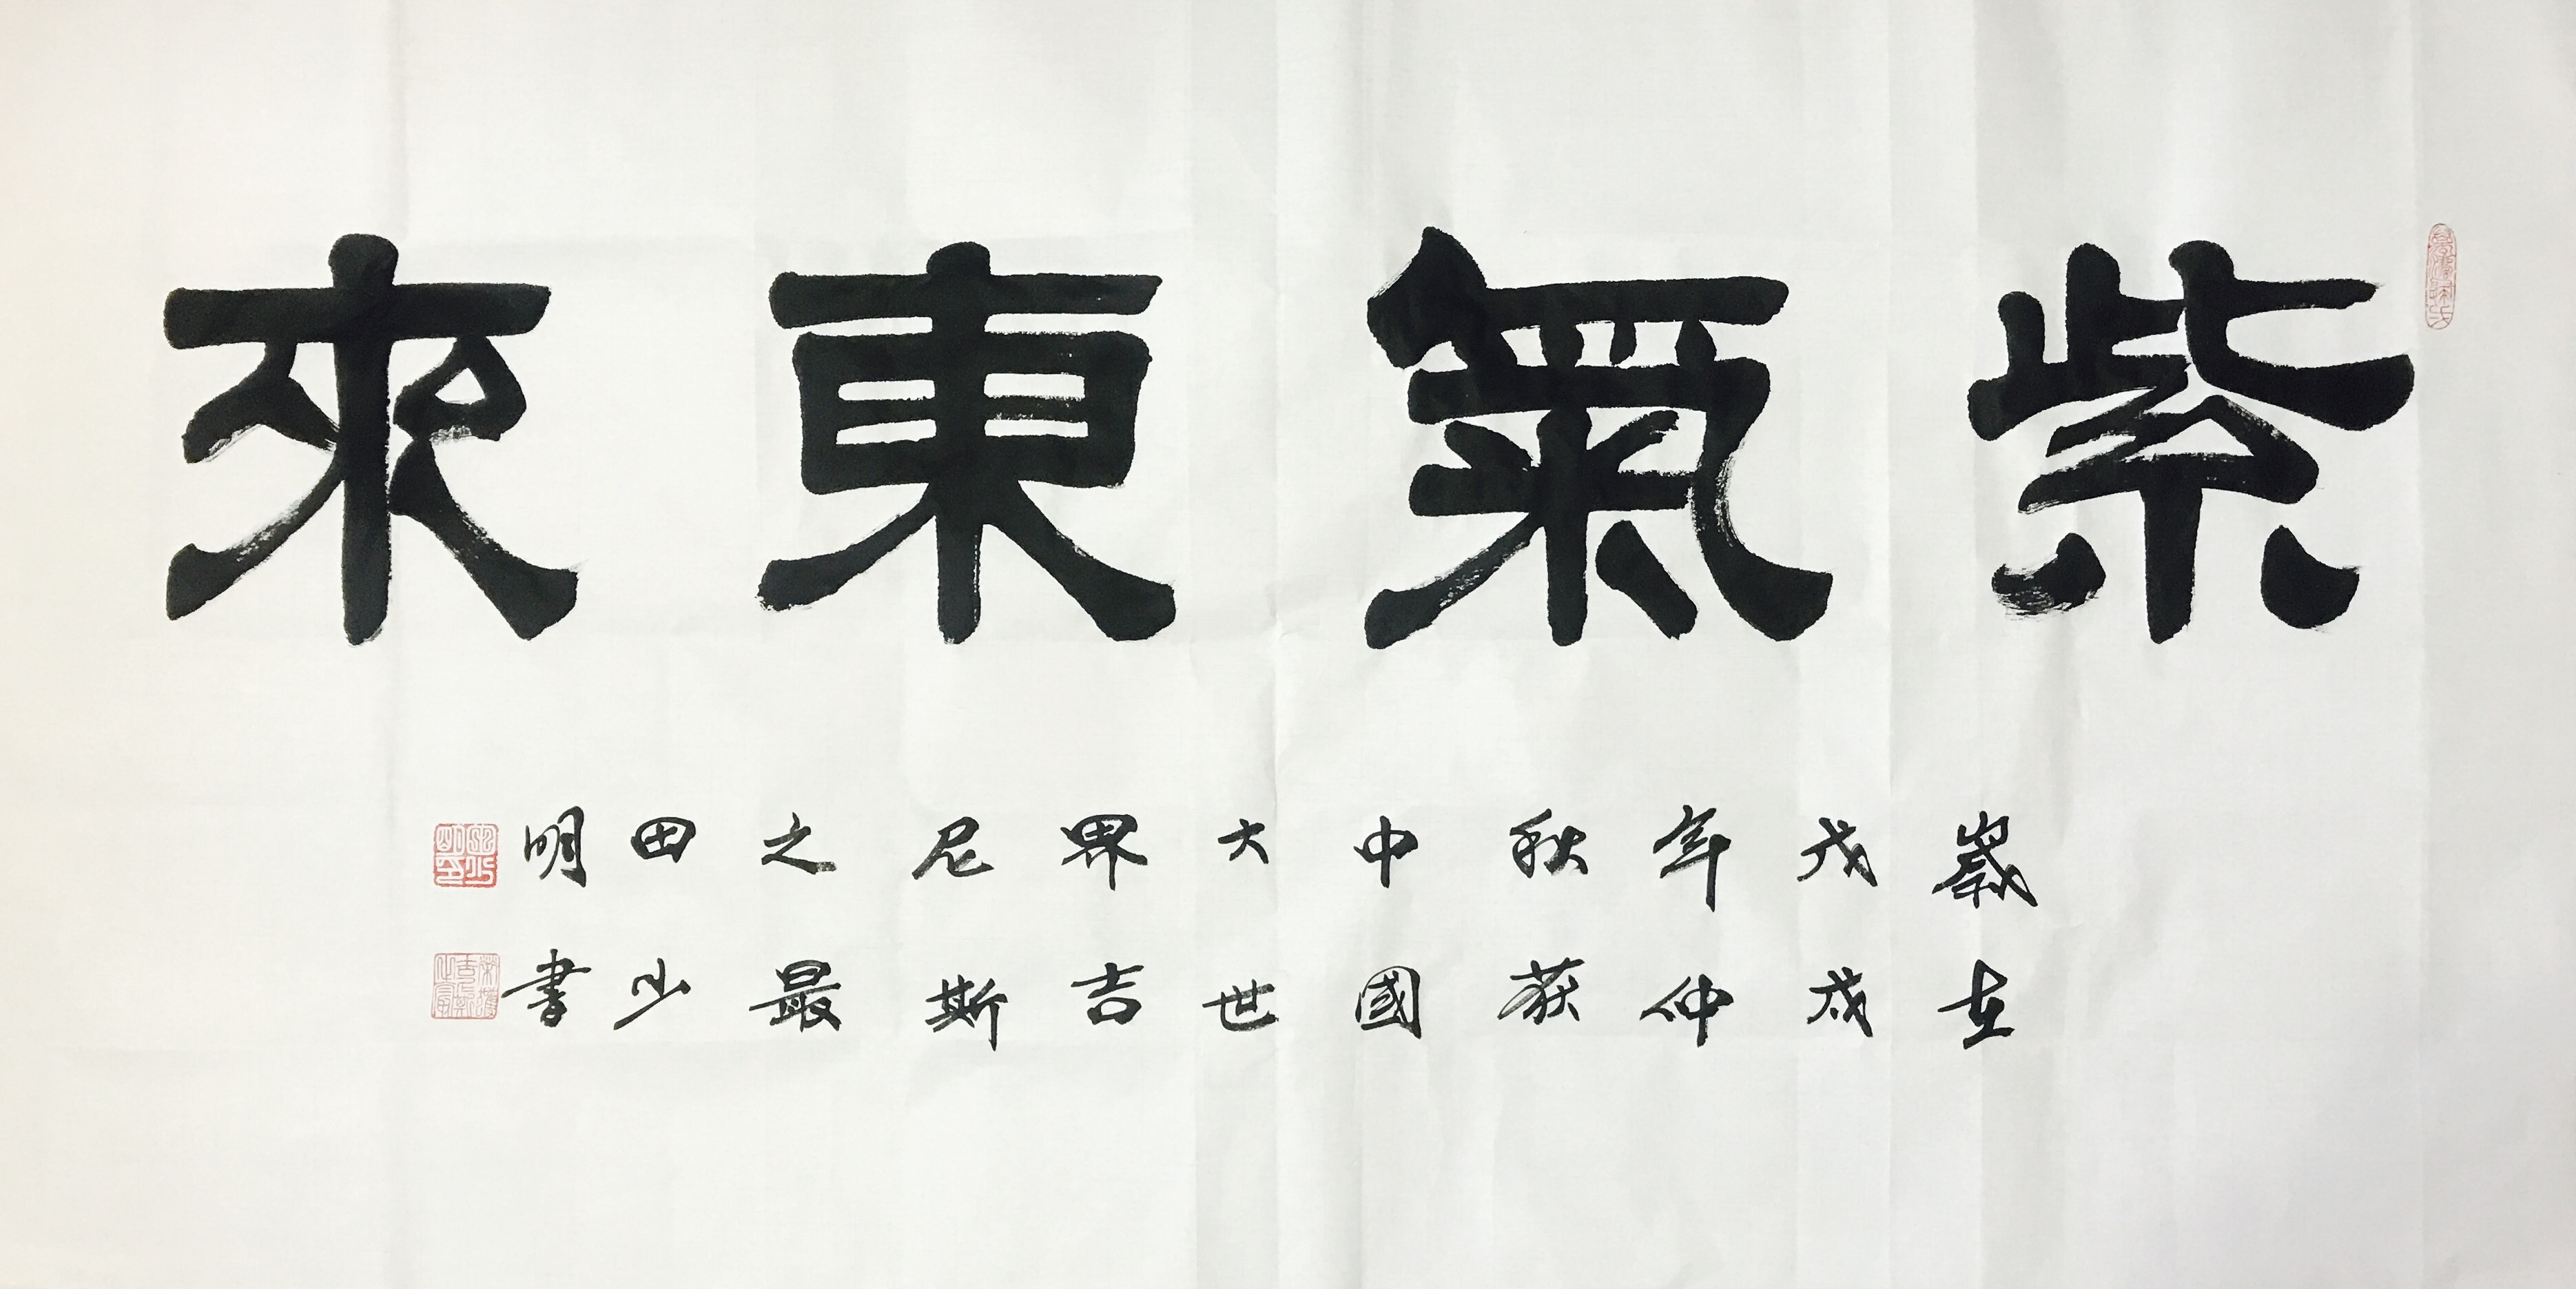 紫氣東來
歲在
戊戌
年仲
秋获
中國
大世
界吉
尼斯
之最
田少
明書